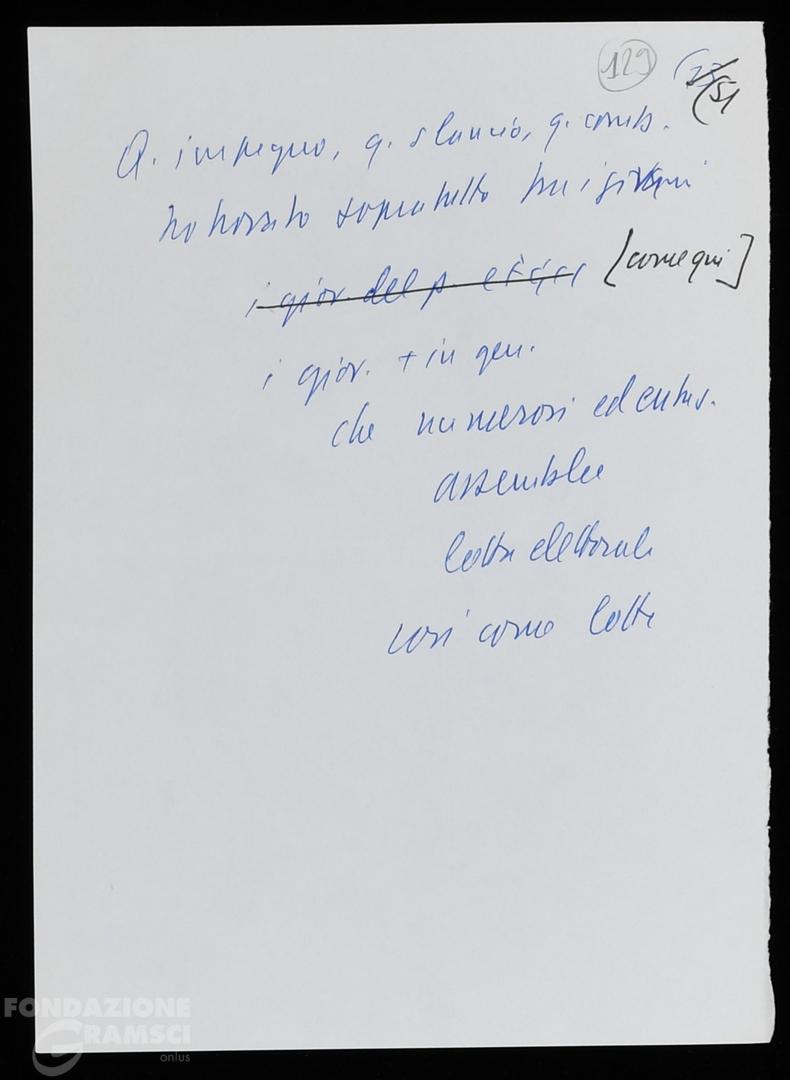 129
51
Q. impegno, q. slancio, q. comb.
ho trovato sopratutto tra i giovani
i giov. del p. e F.G.C.I [come qui]
i giov. + in gen.
che numerosi ed entus.
assemblee
lotta elettorale
così come lotte
FONDAZIONE
GRAMSCI
onlus